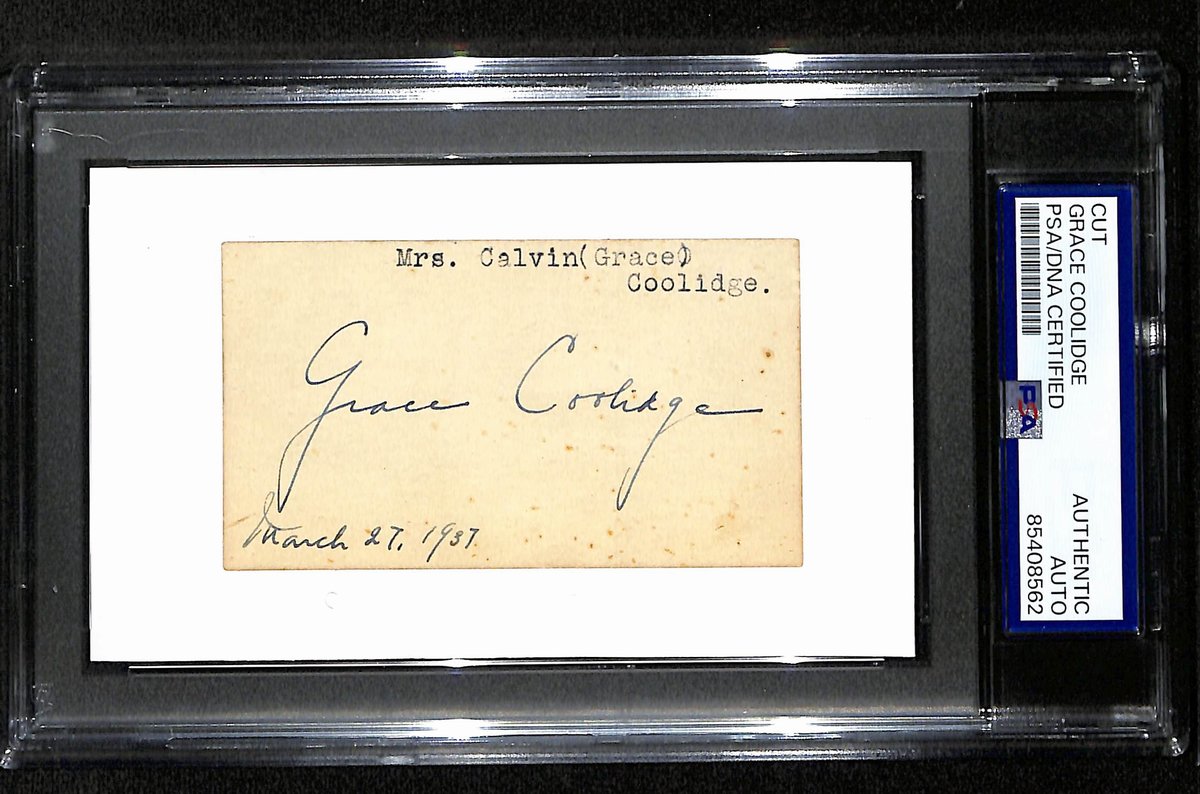 Mrs. Calvin(Grace)
Coolidge.
Grace Coolidge
March 27, 1937
CUT
GRACE COOLIDGE
PSA/DNA CERTIFIED
PSA
AUTHENTIC
AUTO
85408562